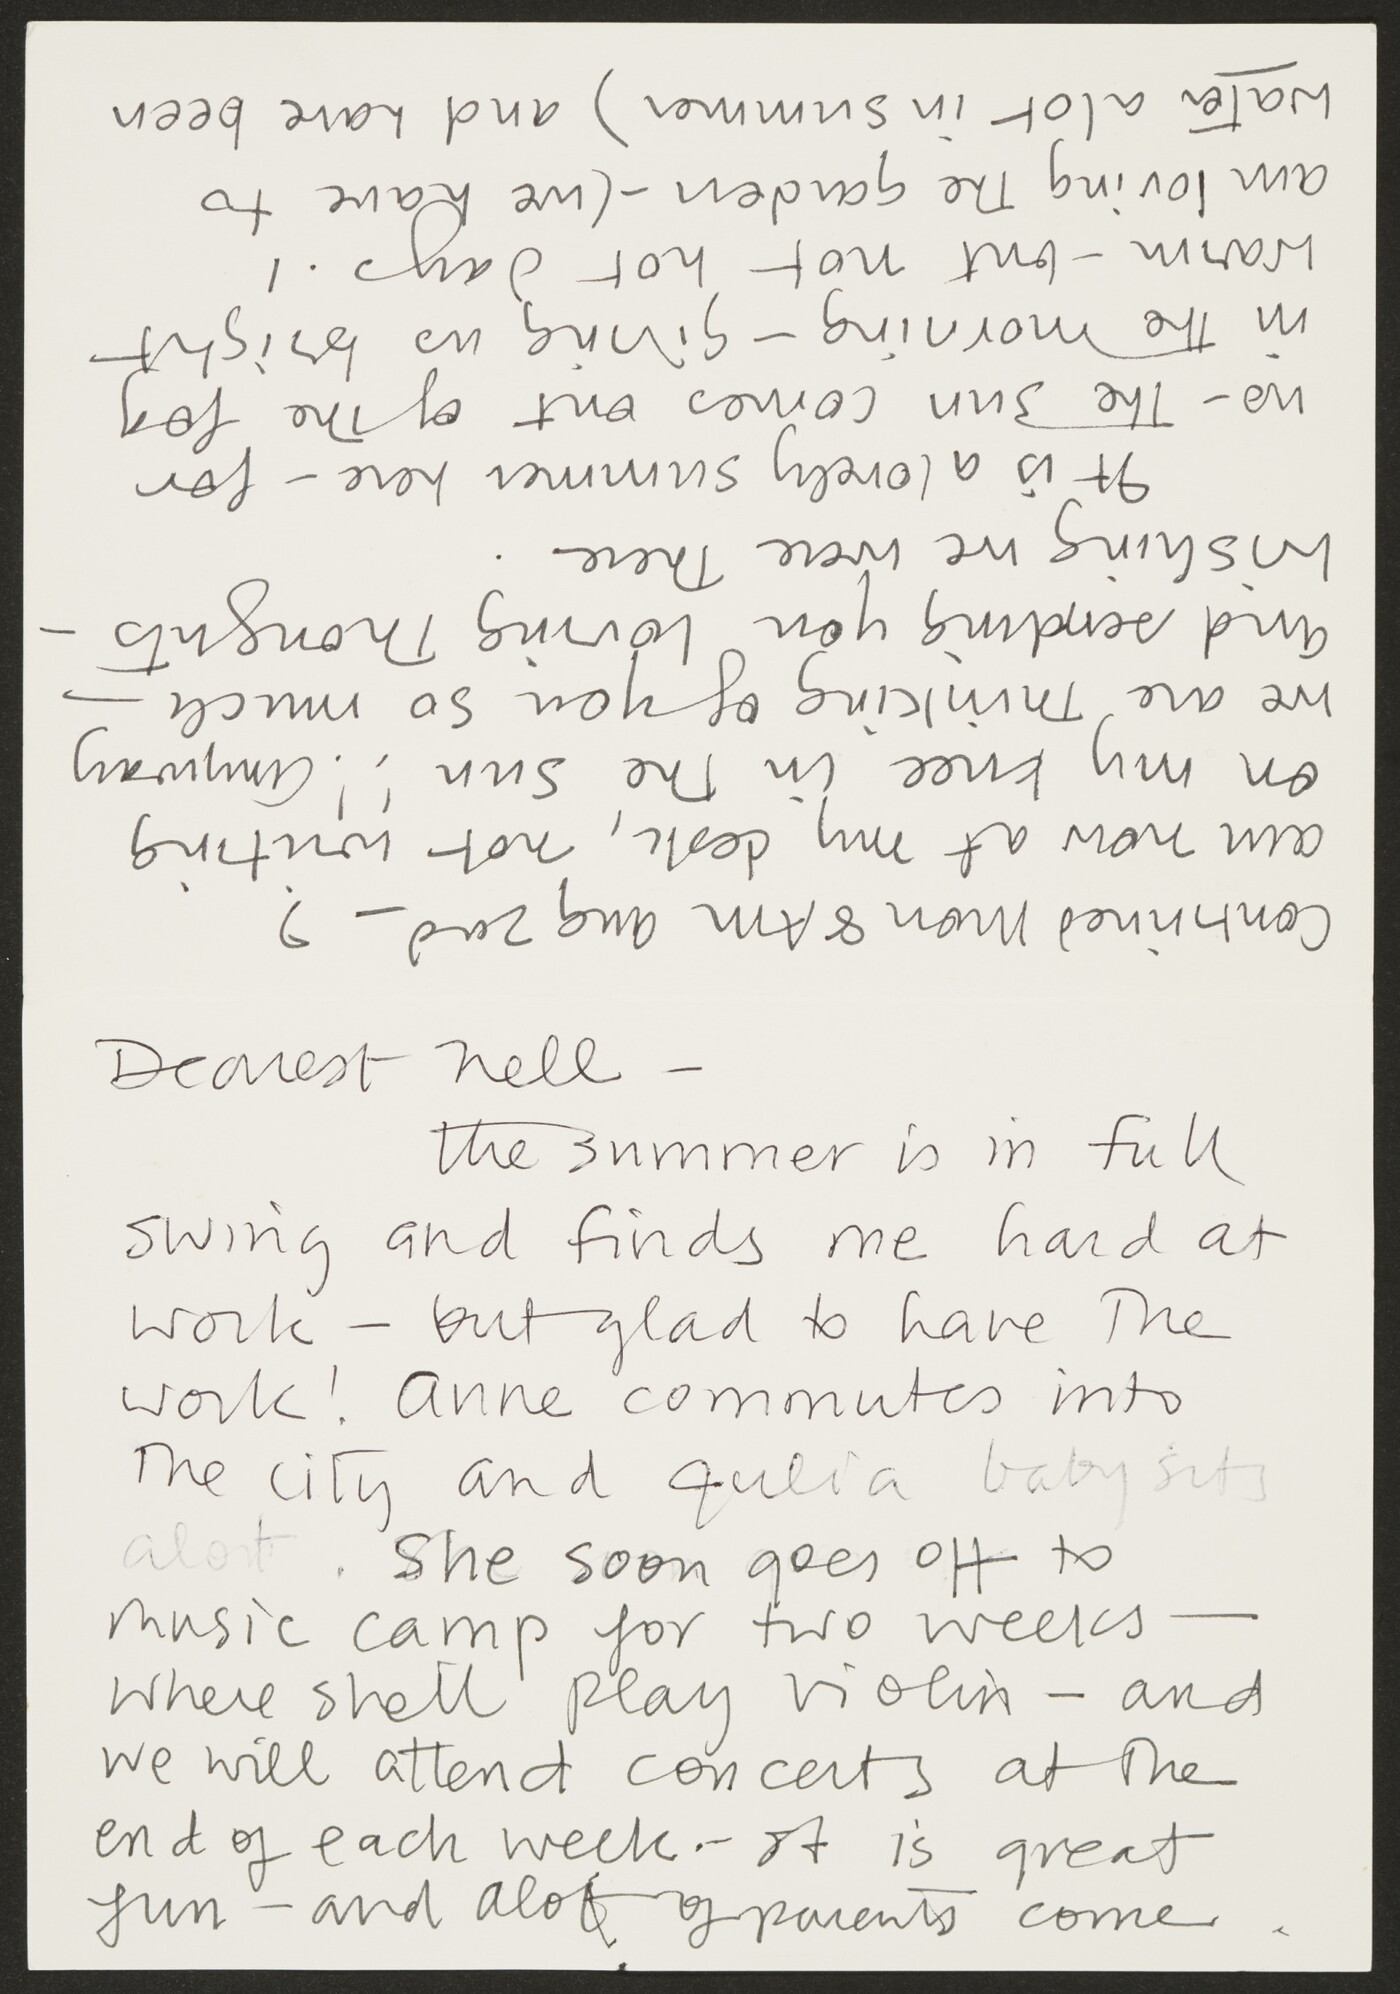 Dearest Nell –
the summer is in full
swing and finds me hard at
work – but glad to have The
work! Anne commutes into
The city and Julia babysits
alot . She soon goes off to
music camp for two weeks —
where shell play violin – and
we will attend concerts at The
end of each week. – It is great
fun – and alot of parents come .
Continued Mon 8 AM Aug 2nd – ?
am now at my desk, not writing
on my knee in The sun !! Anyway
we are Thinking of you so much —
and sending you loving Thoughts –
wishing we were There .
It is a lovely summer here – for
us – The sun comes out of The fog
in the morning – giving us bright
warm – but not hot days . I
am loving The garden – (we have to
water alot in summer) and have been